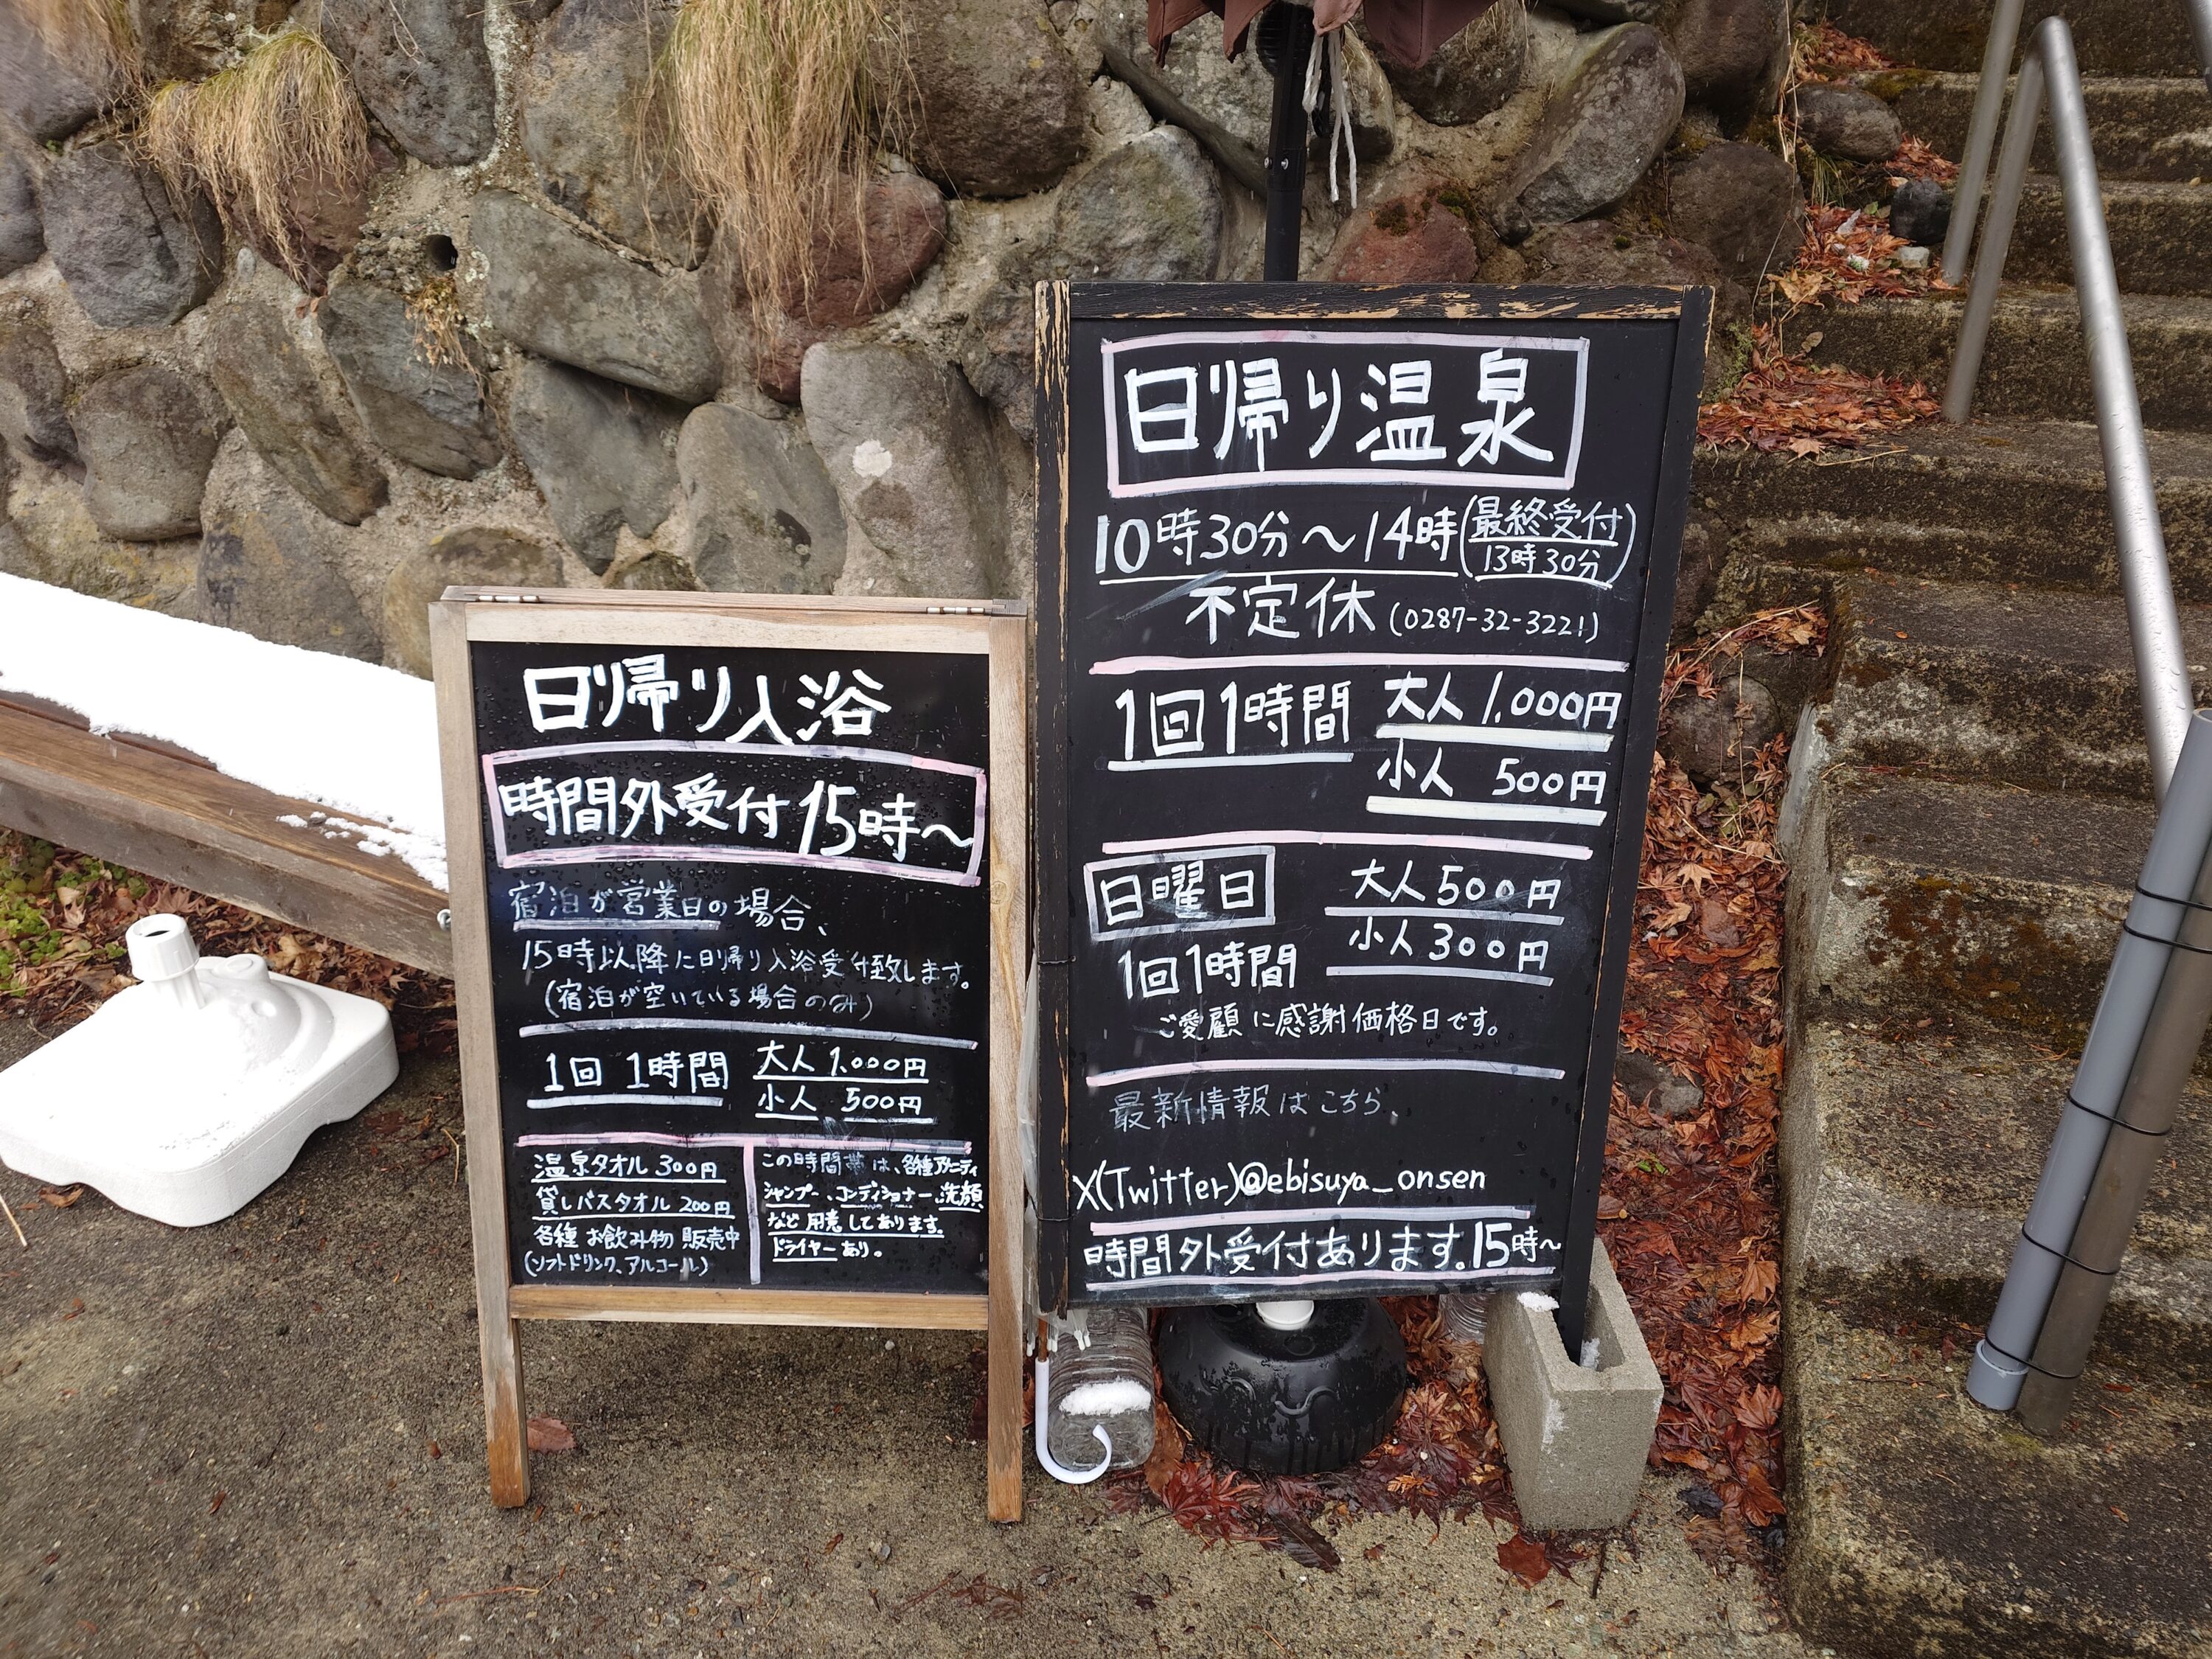 日帰り入浴
時間外受付 15時～
宿泊が営業日の場合、
15時以降に日帰り入浴受付致します。
(宿泊が空いている場合のみ)
1回 1時間
大人 1,000円
小人 500円
温泉タオル 300円
貸しバスタオル 200円
各種 お飲み物 販売中
(ソフトドリンク、アルコール)
この時間帯は、各種アメニティ
シャンプー、コンディショナー、洗顔
など用意してあります。
ドライヤーあり。
日帰り温泉
10時30分～14時(最終受付
13時30分)
不定休(0287-32-3221)
1回1時間
大人 1,000円
小人 500円
日曜日
1回1時間
大人 500円
小人 300円
ご愛顧に感謝価格日です。
最新情報はこちら、
X(Twitter)@ebisuya_onsen
時間外受付あります。15時～